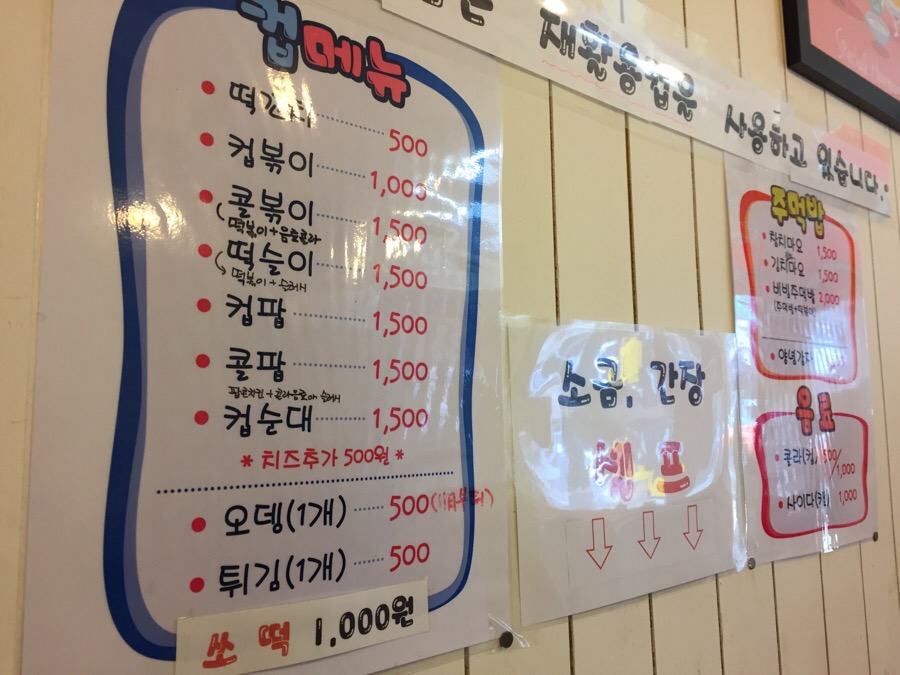 컵메뉴
500
컵볶이 1,000
콜볶이 1,500
떡볶이+음료콜라
떡슬이 1,500
떡볶이+슬러시
컵팝 1,500
콜팝 1,500
컵순대 1,500
*치즈추가 500원*
오뎅(1개) 500
튀김(1개) 500
쏘떡 1,000원
재활용컵을 사용하고 있습니다.
소금, 간장
셀프
주먹밥
참치마요 1,500
김치마요 1,500
비빔주먹밥 2,000
(주먹밥+떡볶이)
음료
콜라(컵) 500/1,000
사이다(캔) 1,000